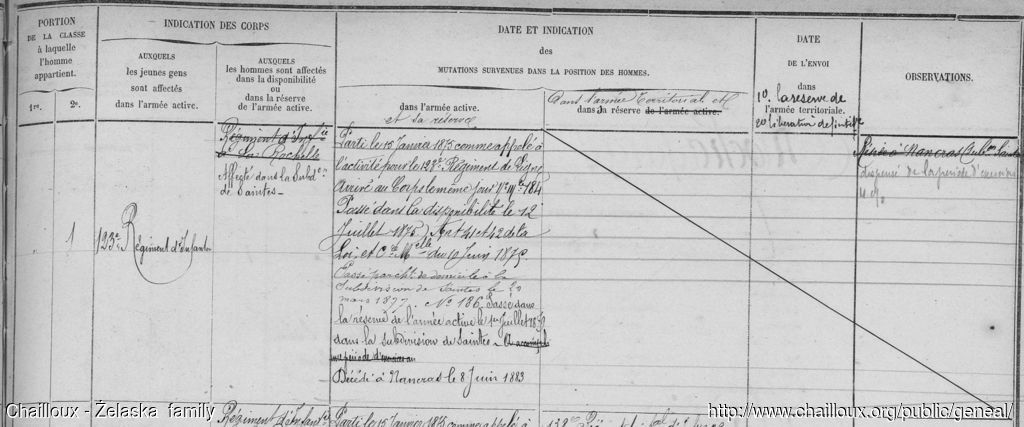 PORTION
DE LA CLASSE
à laquelle
l'homme
appartient.
1re.
2e.
INDICATION DES CORPS
AUXQUELS
les jeunes gens
sont affectés
dans l'armée active.
AUXQUELS
les hommes sont affectés
dans la disponibilité
ou
dans la réserve
de l'armée active.
DATE ET INDICATION
des
MUTATIONS SURVENUES DANS LA POSITION DES HOMMES.
dans l'armée active.
et sa réserve
Dans l'armée Territoriale et
dans sa réserve de l'armée active.
DATE
DE L'ENVOI
dans
1o. la réserve de
l'armée territoriale.
2o libération définitive
OBSERVATIONS.
1
123e Régiment d'Infanterie
Régiment d'Inf.ie
de La Rochelle
Affecté dans la Subd.on
de Saintes
Parti le 15 Janvier 1875 comme appelé à
l'activité pour le 123e Régiment de Ligne
Arrivé au Corps le même jour No Mle 184
Passé dans la disponibilité le 12
Juillet 1875, Art 41 et 42 de la
Loi et C.re M.elle du 10 Juin 1875.
Passé par cht de domicile à la
Subdivision de Saintes le 20
mars 1877. No 186. Passé dans
la réserve de l'armée active le 1er Juillet
dans la subdivision de Saintes - A accompli
une période d'exercices en
Décédé à Nancras le 8 Juin 1883
Nancras
dispensé de la période d'exercices
Régiment d'Infant.ie
Parti le 15 Janvier 1875 comme appelé à
Chailloux - Żelaska family
http://www.chailloux.org/public/geneal/